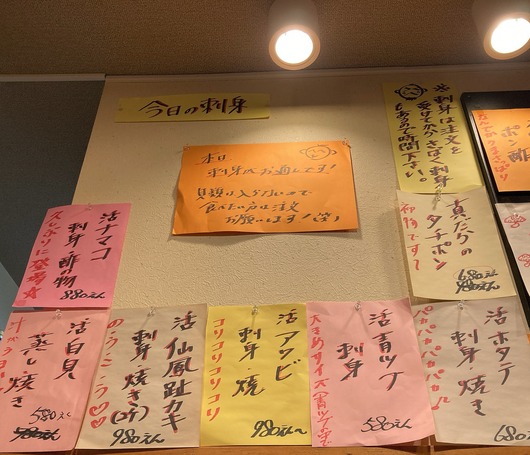 今日の刺身
本日
刺身がお通しです!
貝類は入らないので
食べたい方は注文
お願いします!(笑)
※刺身は注文を
受けてからさばく刺身
もあるので時間
下さい。
ポン酢
活ナマコ
刺身 酢の物
久しぶりに登場☆
880えん
真だちの
タチポン
初物です〜
680えん
活白貝
蒸し焼き
580えん
活仙鳳趾カキ
刺身 焼き(2ケ)
のうこう♡♡
980えん
活アワビ
刺身・焼
コリコリコリコリ
980えん〜
活青ツブ
刺身
大きめサイズ
580えん
活ホタテ
刺身・焼き
パカパカパカパカ♪
680